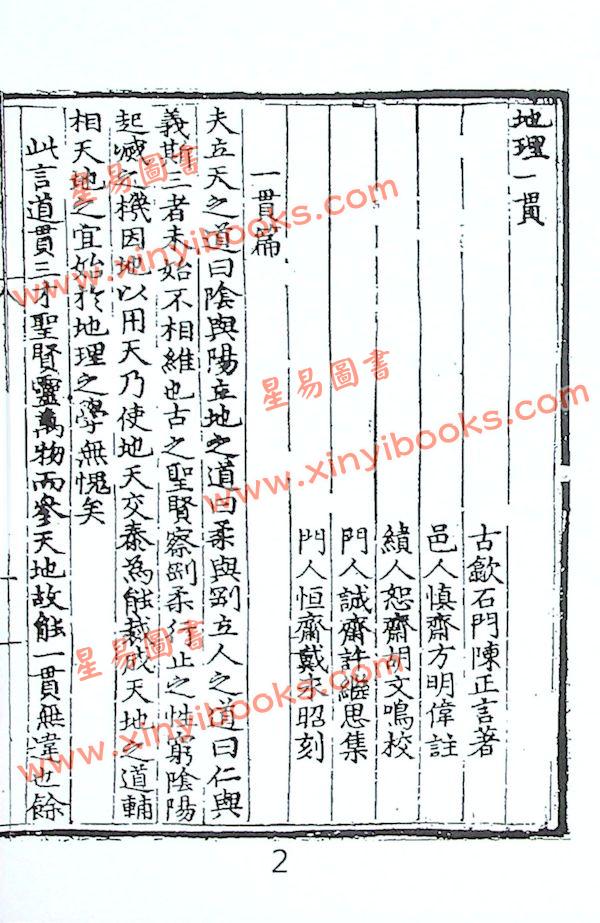 地理一貫
古歙石門陳正言著
邑人慎齋方明偉註
績人恕齋胡文鳴校
門人誠齋許繼思集
門人恒齋戴宗昭刻
一貫篇
夫立天之道曰陰與陽立地之道曰柔與剛立人之道曰仁與
義斯三者未始不相維也古之聖賢察剛柔行止之性窮陰陽
起滅之機因地以用天乃使地天交泰為能裁成天地之道輔
相天地之宜始於地理之學無愧矣
此言道貫三才聖賢靈萬物而參天地故能一貫無違也餘
2
星易圖書
www.xinyibooks.com
星易圖書
www.xinyibooks.com
星易圖書
www.xinyibooks.com